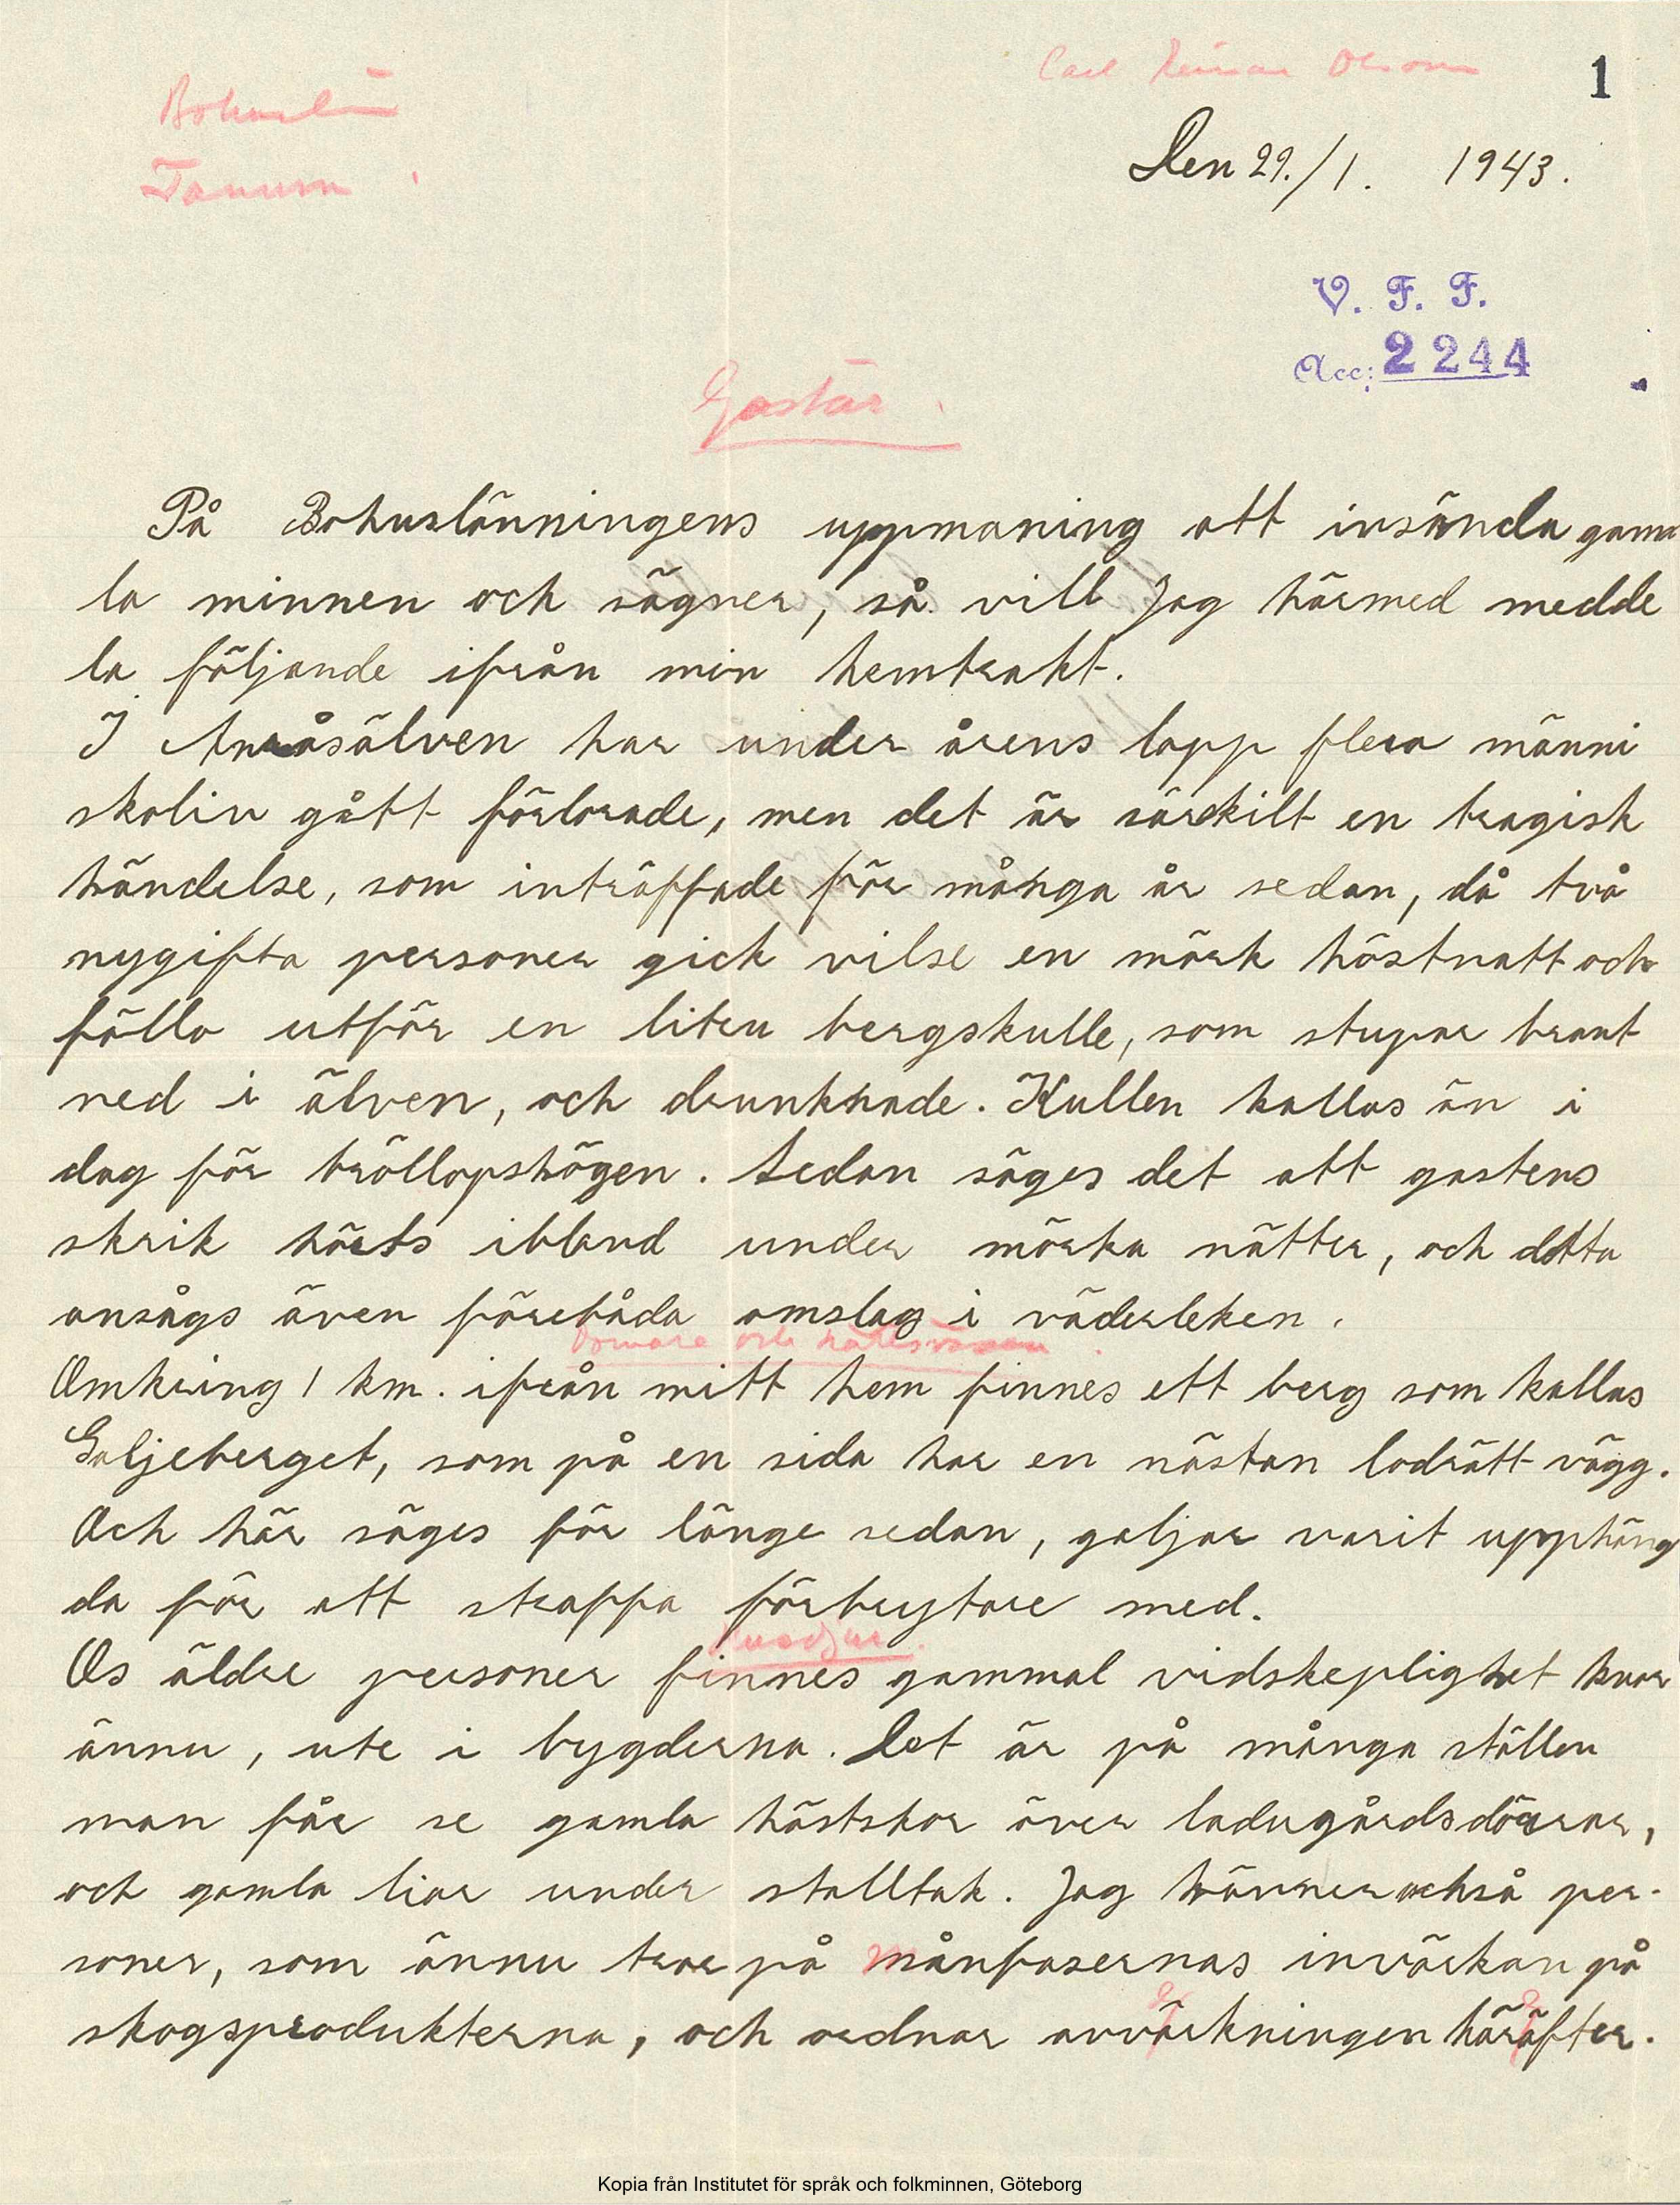 Carl Reinar Olsson
1
Bohuslän
Tanum
Den 29./1. 1943.
V. F. F.
Acc: 2244
Gastar.
På Bohuslänningens uppmaning att insända gam
la minnen och sägner, så vill Jag härmed medde
la följande ifrån min hemtrakt.
I Anråsälven har under årens lopp flera männi
skoliv gått förlorade, men det är särskilt en tragisk
händelse, som inträffade för många år sedan, då två
nygifta personer gick vilse en mörk höstnatt och
föllo utför en liten bergskulle, som stupar brant
ned i älven, och drunknade. Kullen kallas än i
dag för bröllopshögen. Sedan säges det att gastens
skrik hörts ibland under mörka nätter, och detta
ansågs även förebåda omslag i väderleken.
Domare och rättsväsen.
Omkring 1 km. ifrån mitt hem finnes ett berg som kallas
Galjeberget, som på en sida har en nästan lodrätt vägg.
Och här säges för länge sedan, galjar varit upphäng
da för att straffa förbrytare med.
Husdjur.
Os äldre personer finnes gammal vidskeplighet kvar
ännu, ute i bygderna. Det är på många ställen
man får se gamla hästskor över ladugårdsdörrar,
och gamla liar under stalltak. Jag känner också per-
soner, som ännu tror på månfasernas invärkan på
skogsprodukterna, och ordnar avvärkningen häräfter.
Kopia från Institutet för språk och folkminnen, Göteborg